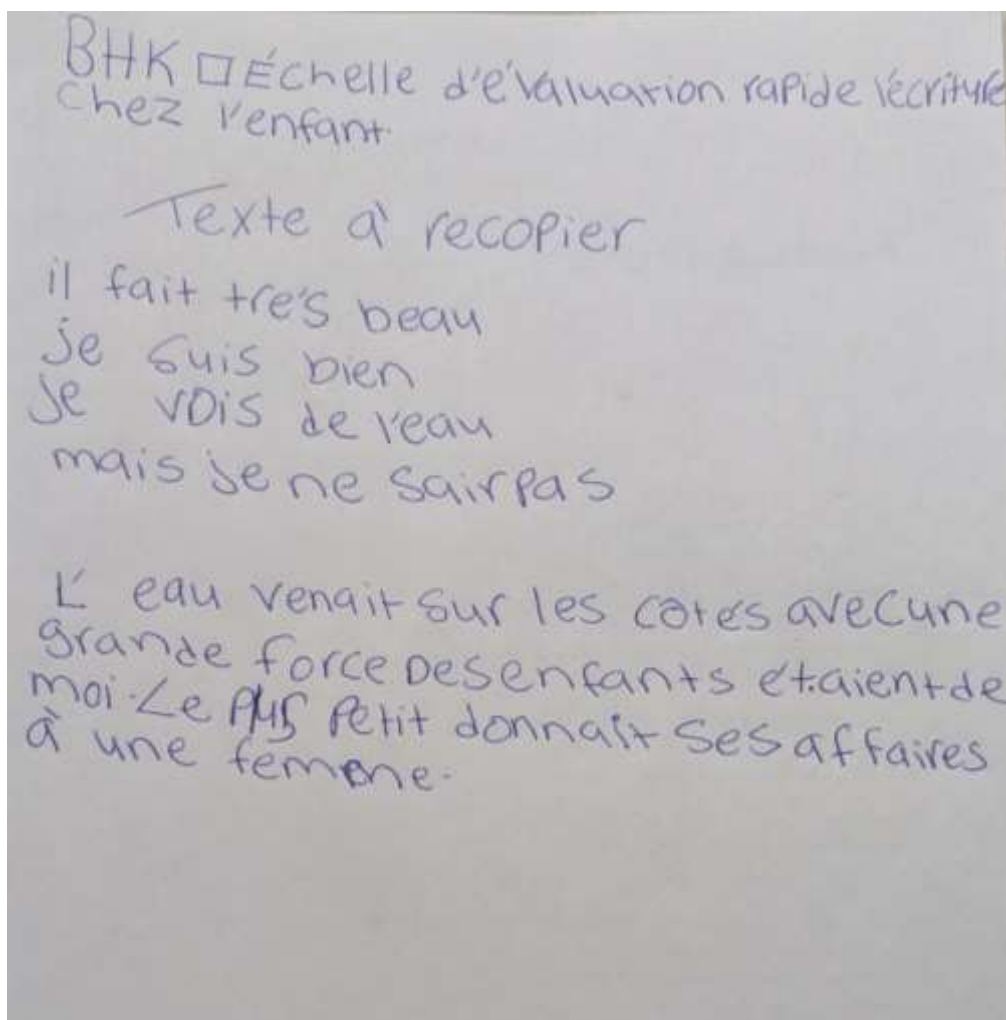 BHK □ Échelle d'évaluation rapide l'écriture
chez l'enfant.
Texte à recopier
il fait trés beau
je suis bien
je vois de l'eau
mais je ne sairpas
L' eau venait sur les cotés avecune
grande force Desenfants étaientde
moi. Le plus petit donnait ses affaires
à une femme.